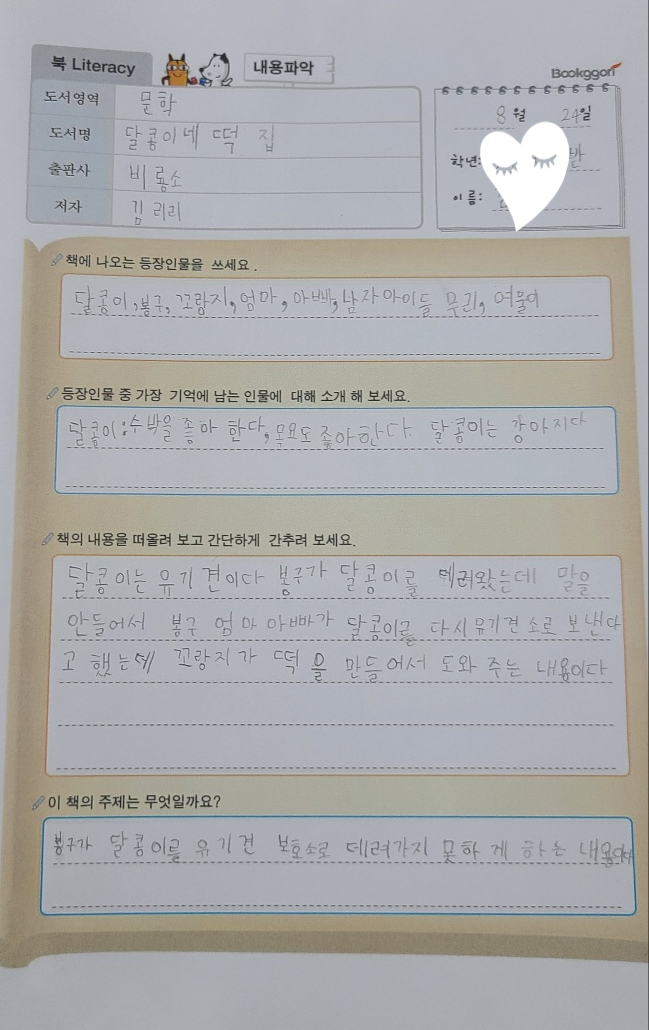 북 Literacy
내용파악
Bookggori
도서영역 문학
도서명 달콩이네 떡 집
출판사 비룡소
저자 김 리리
8월 24일
학년: 반
이름:
책에 나오는 등장인물을 쓰세요 .
달콩이,봉구, 꼬랑지,엄마, 아빠,남자아이들 무리, 여울이
등장인물 중 가장 기억에 남는 인물에 대해 소개 해 보세요.
달콩이:수박을 좋아 한다, 목욕도 좋아한다. 달콩이는 강아지다
책의 내용을 떠올려 보고 간단하게 간추려 보세요.
달콩이는 유기견이다 봉구가 달콩이를 데려왔는데 말을
안들어서 봉구 엄마 아빠가 달콩이를 다시 유기견 소로 보낸다
고 했는데 꼬랑지가 떡을 만들어서 도와 주는 내용이다
이 책의 주제는 무엇일까요?
봉구가 달콩이를 유기견 보호소로 데려가지 못하 게 하는 내용이다